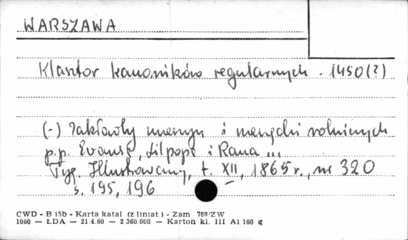 WARSZAWA
Klasztor kanoników regularnych . 1450(?)
(-) Zakłady maszyn i narzędzi rolniczych
p.p. Evans, Lilpop i Rana ...
Tyg. Illustrowany, t. XII, 1865 r., nr 320
s. 195, 196
CWD – B 15b – Karta katal (z liniat.) – Zam 788/ZW
1060 — ŁDA — 21.4.60 — 2 360.000 — Karton kl. III A1 160 g